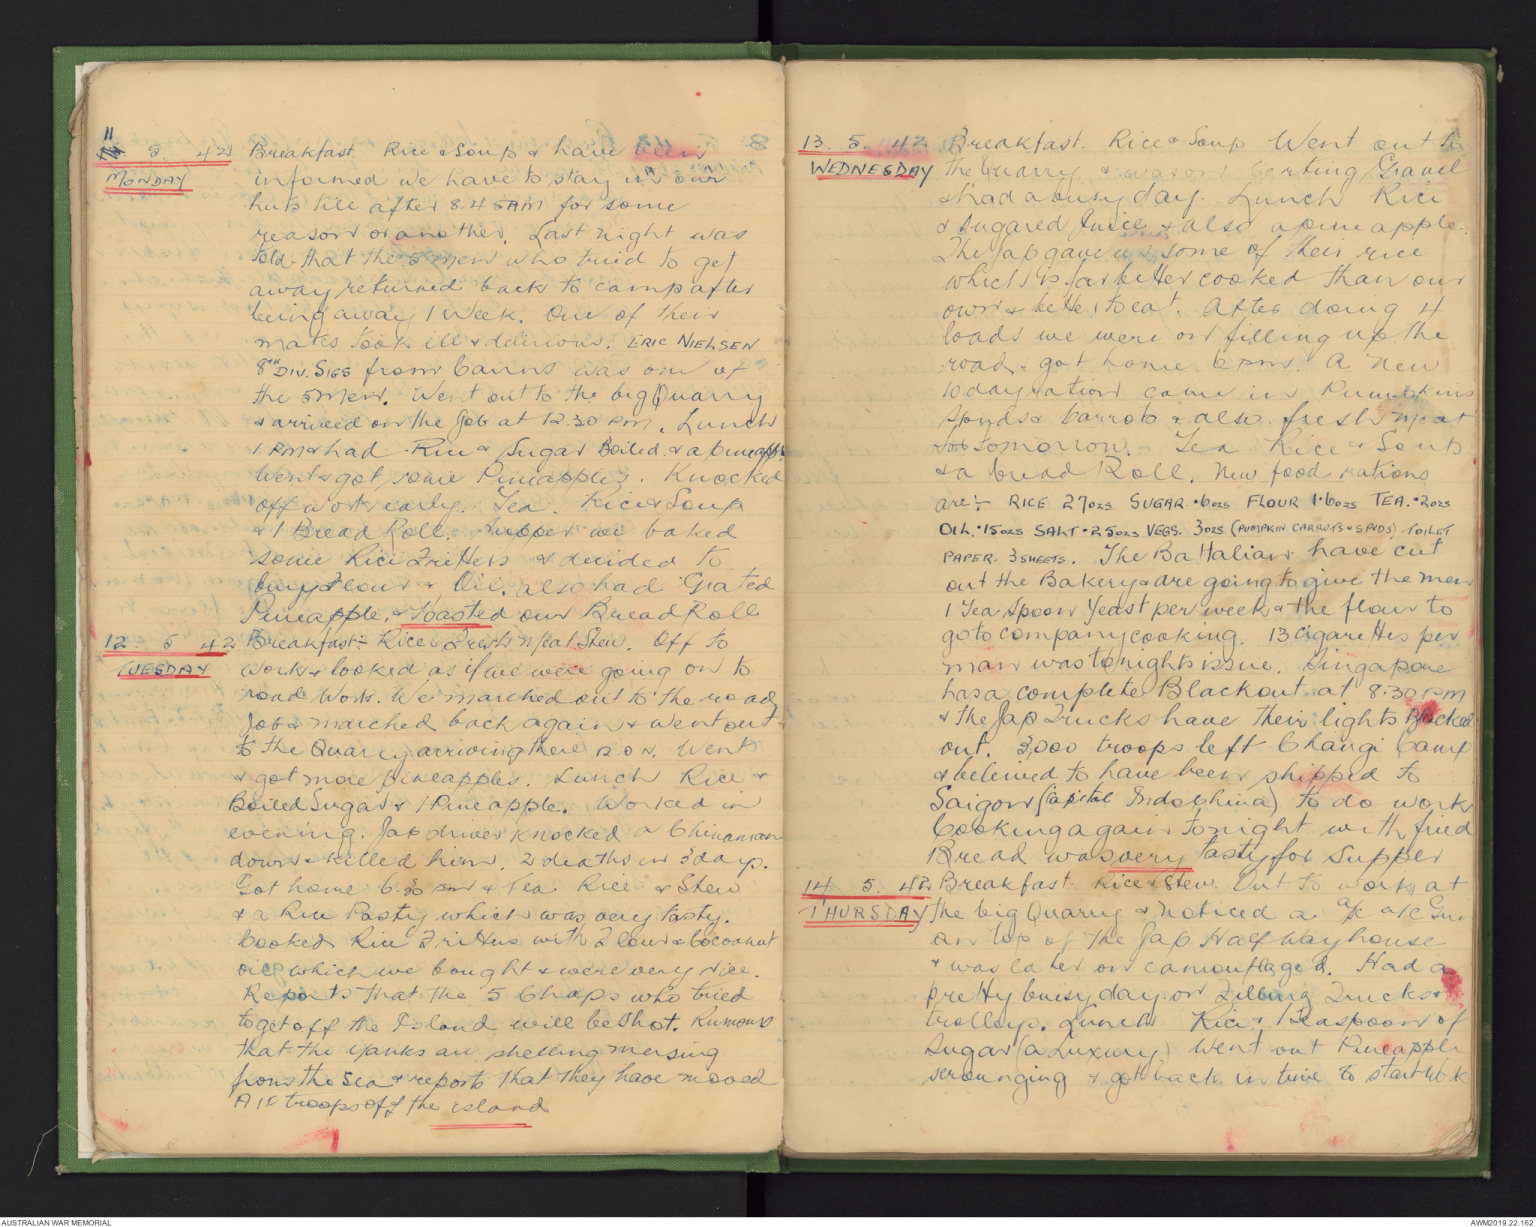 11 5. 42 Breakfast. Rice & Soup & have been
MONDAY informed we have to stay in our
huts till after 8.45AM for some
reason or another. Last night was
told that the 5 men who tried to get
away returned back to camp after
being away 1 Week. One of their
mates took ill & delirious. ERIC NIELSEN
8TH DIV. SIGS from Cairns was one of
the 5 men. Went out to the big Quarry
& arrived on the Job at 12.30 PM. Lunch
1 PM & had Rice & Sugar Boiled & a pineapple
Went & got some Pineapples. Knocked
off work early. Tea. Rice & Soup
& 1 Bread Roll. Supper we baked
some Rice Fritters & decided to
buy Flour & Oil. also had Grated
Pineapple. & Toasted our Bread Roll
12. 5 42 Breakfast:- Rice & Fresh Meat Stew. Off to
TUESDAY work & looked as if we were going on to
road work. We marched out to the road
Job & marched back again & went out
to the Quarry arriving there 12.0 N. Went
& got more Pineapples. Lunch Rice &
Boiled Sugar & 1 Pineapple. Worked in
evening. Jap driver knocked a Chinaman
down & killed him. 2 deaths in 3 days.
Got home 6.30 pm & Tea Rice & Stew
& a Rice Pasty which was very tasty.
Cooked Rice Fritters with Flour & Cocoanut
oil which we bought & were very nice.
Reports that the 5 Chaps who tried
to get off the Island will be shot. Rumours
that the Yanks are shelling mersing
from the Sea & reports that they have moved
AIF troops off the island
13. 5. 42 Breakfast. Rice & Soup Went out to
WEDNESDAY the Quarry & was on Carting Gravel
& had a busy day. Lunch Rice
& Sugared Juice & also a pineapple.
The Jap gave us some of their rice
which is far better cooked than our
own & better to eat. After doing 4
loads we were on filling up the
road & got home 6 pm. A new
10 day ration came in Pumpkins
Spuds & Carrots & also fresh Meat
for tomorrow. Tea Rice & Soup
& a bread Roll. New food rations
are:- RICE 27ozs SUGAR .6ozs FLOUR 1.6ozs TEA. .2ozs
OIL. .15ozs SALT .25ozs VEGS. 3ozs (PUMPKIN CARROTS & SPUDS) TOILET
PAPER. 3 SHEETS. The Battalion have cut
out the Bakery & are going to give the men
1 Tea Spoon Yeast per week & the flour to
go to company cooking. 13 cigarettes per
man was tonights issue. Singapore
has a complete Blackout at 8:30 PM
& the Jap Trucks have their lights Blacked
out. 3,000 troops left Changi Camp
& beleived to have been shipped to
Saigon (Capital Indochina) to do work
Cooking again tonight with fried
Bread was very tasty for Supper
14 5. 42. Breakfast. Rice & Stew. Out to work at
THURSDAY the big Quarry & noticed a a/c Gun
on top of the Jap Half Way house
& was later on camouflaged. Had a
pretty busy day on Filling Trucks &
trolleys. Lunch Rice & 1 Teaspoon of
Sugar (a Luxury.) Went out Pineapple
scrounging & got back in time to start work
AUSTRALIAN WAR MEMORIAL
AWM2019.22.162